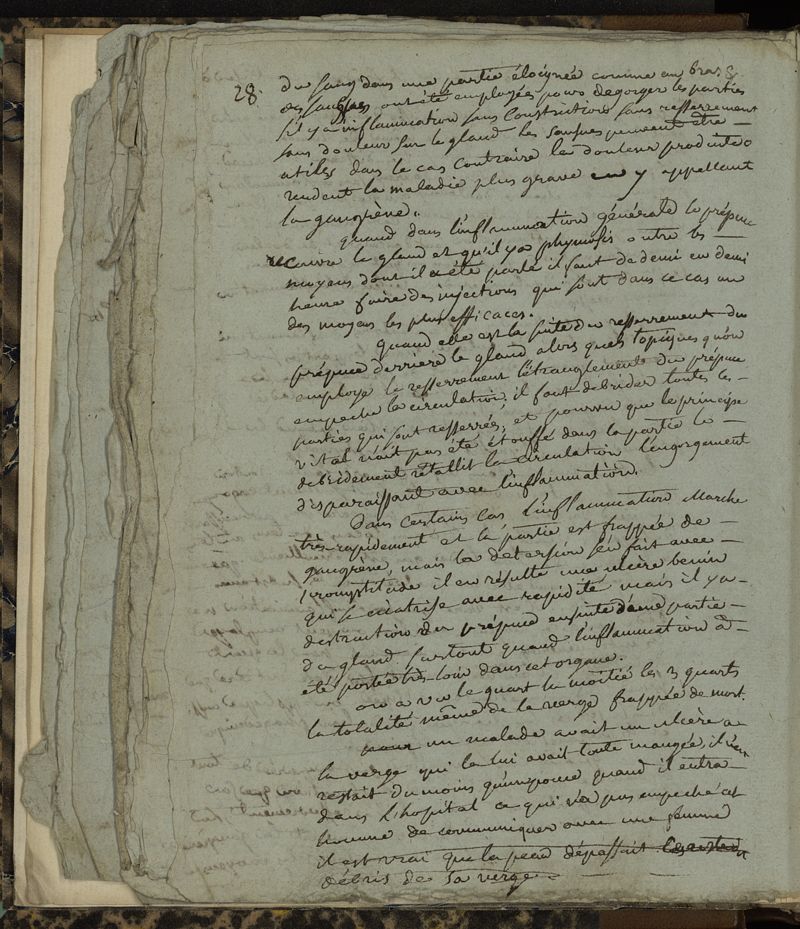 28.
du sang dans une partie éloignée comme au bras &
des sangsues ont été employées pour degorger les parties
s'il y a inflammation sans constriction sans resserrement
sans douleur sur le gland les sansues peuvent être
utiles dans le cas contraire la douleur produite
rendent la maladie plus grave en y appellant
la gangrène.
quand dans l'inflammation générale le prépuce
recouvre le gland et qu'il y a phymosis outre les
moyens dont il a été parlé il faut de demi en demi
heure faire des injections qui sont dans ce cas un
des moyens les plus efficaces.
quand elle est la suite du resserrement du
prépuce derriere le gland alors ques topiques qu'on
employe le resserrement l'étranglement du prépuce
empeche la circulation, il faut debrider toutes les
parties qui sont resserrées, et pourvu que le principe
vital n'ait pas été étouffé dans la partie le
debridement rétablit la circulation l'engorgement
disparaissant avec l'inflammation.
Dans certains cas l'inflammation marche
très-rapidement et la partie est frappée de
gangrène, mais la detersion s'en fait avec
promptitude il en résulte un ulcère benin
qui se cicatrise avec rapidité mais il y a
destruction du prépuce ensuite d'une partie
du gland surtout quand l'inflammation a
été portée très-loin dans cet organe.
on a vu le quart la moitié les 3 quarts
la totalité même de la verge frappée de mort.
un malade avait un ulcère a
la verge qui la lui avait toute mangée, il n'en
restait du moins qu'un pouce quand il entra
dans l'hopital ce qui n'a pas empeché cet
homme de communiquer avec une femme
il est vrai que la peau dépassait
débris de sa verge